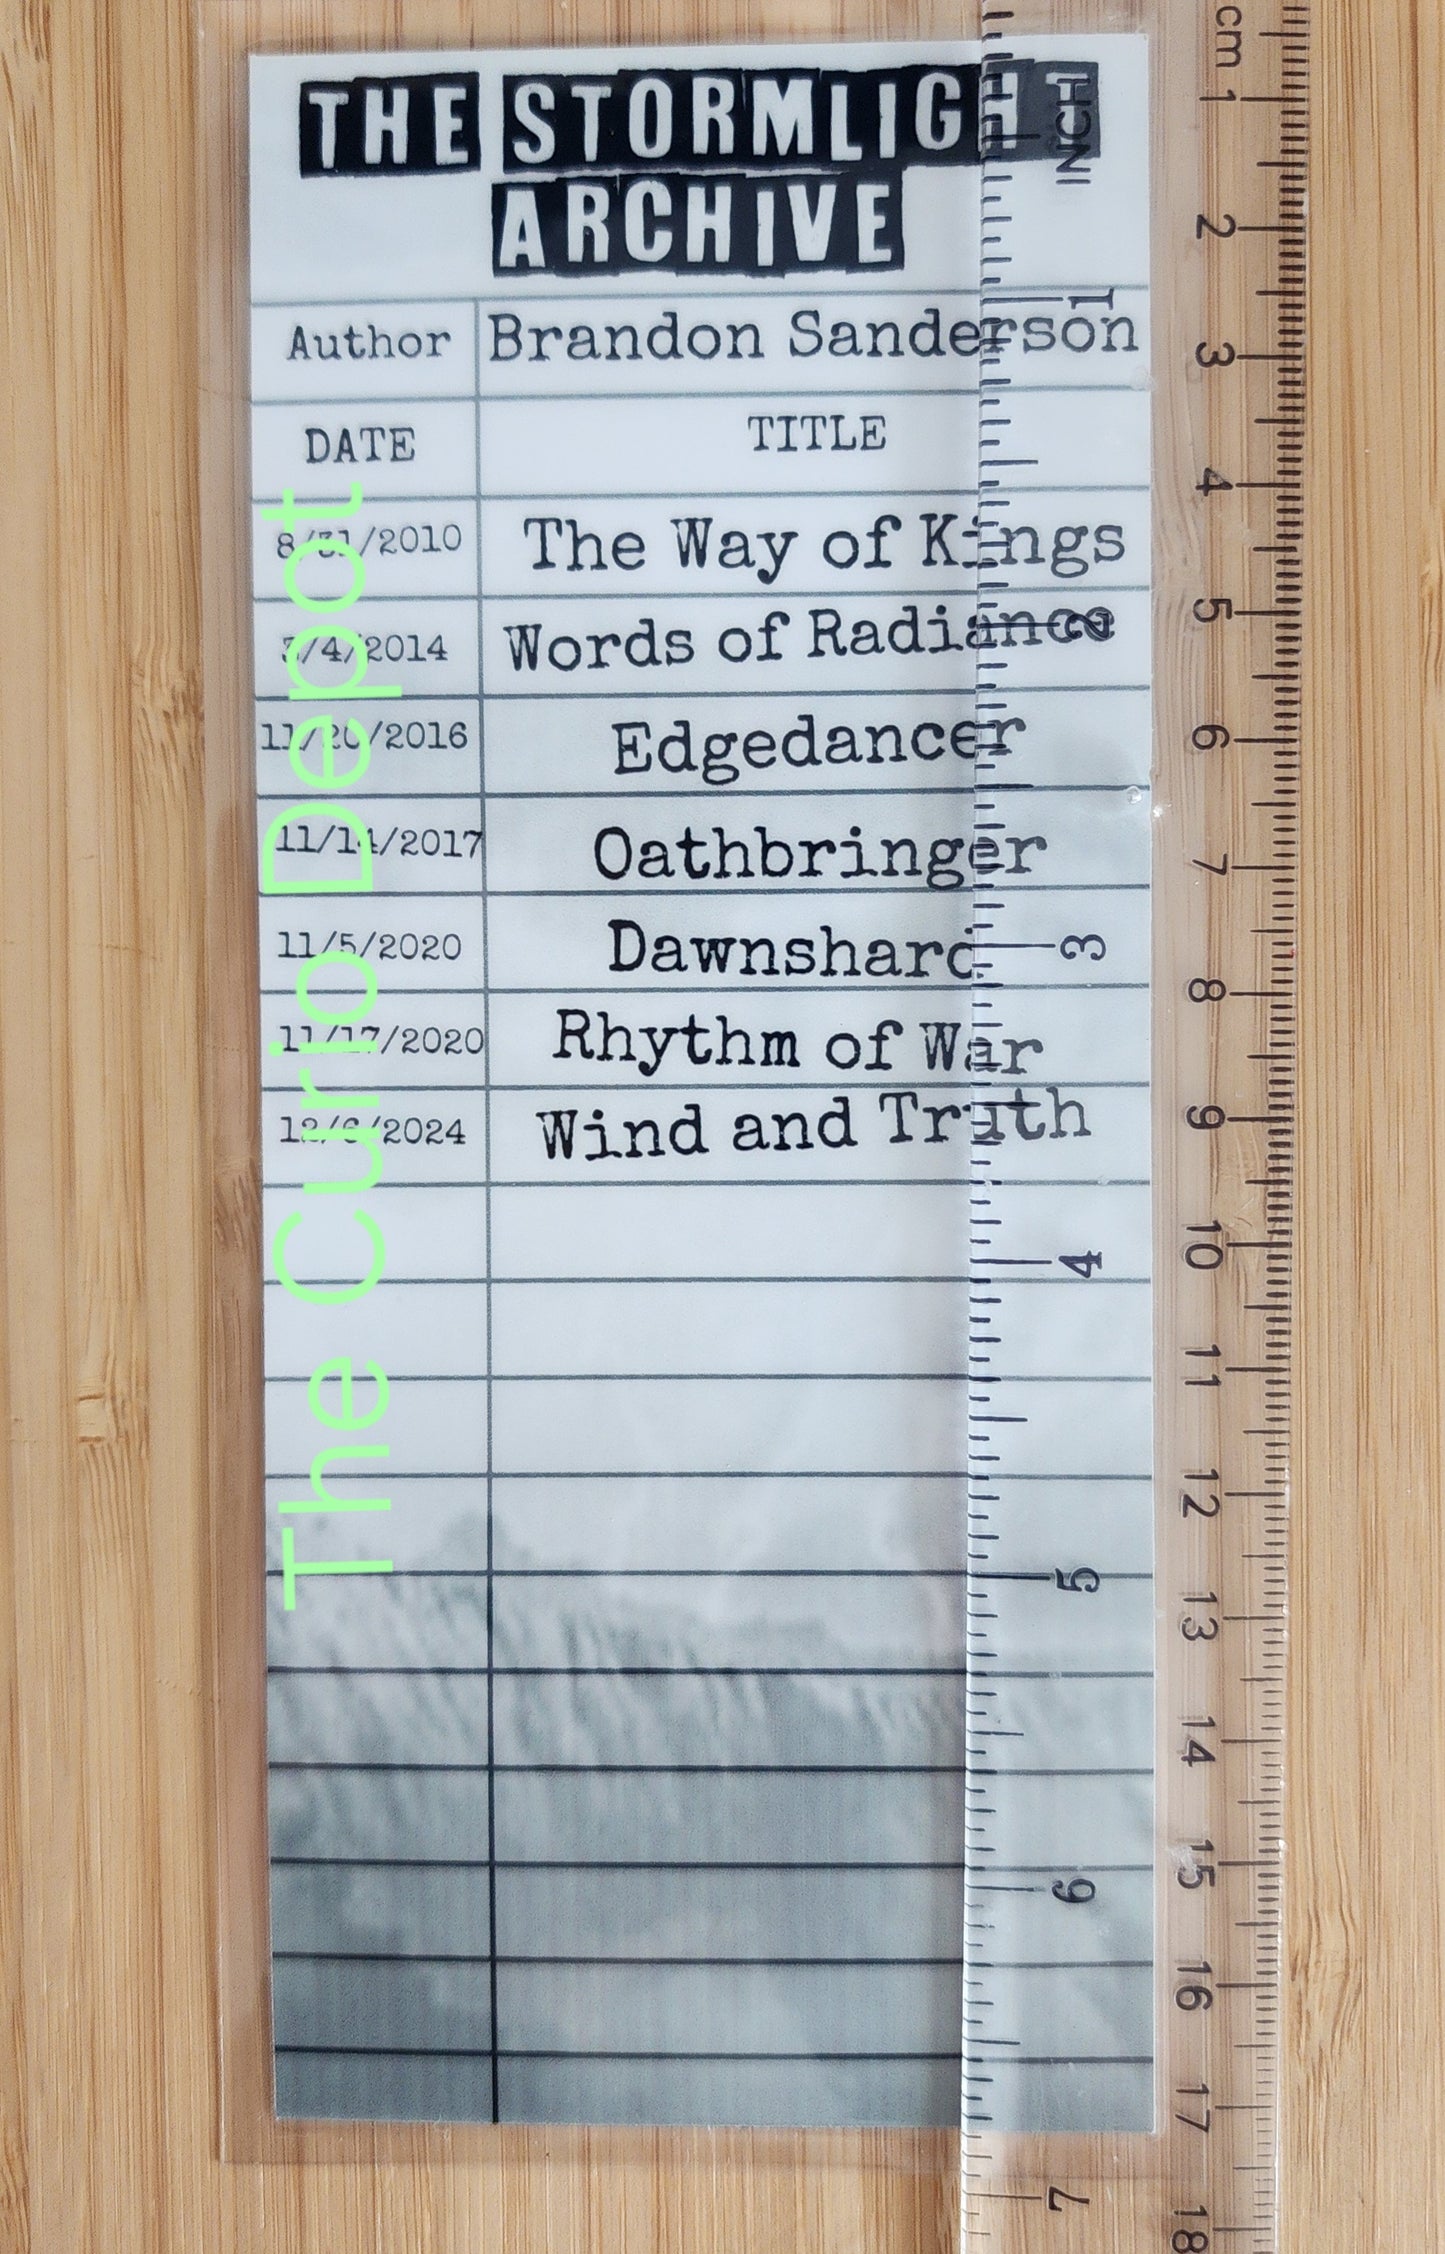 THE STORMLIGHT
ARCHIVE
Author Brandon Sanderson
DATE TITLE
8/31/2010 The Way of Kings
3/4/2014 Words of Radiance
11/26/2016 Edgedancer
11/14/2017 Oathbringer
11/5/2020 Dawnshard
11/17/2020 Rhythm of War
12/6/2024 Wind and Truth
The Curio Depot
INCH
1
2
3
4
5
6
7
cm
1
2
3
4
5
6
7
8
9
10
11
12
13
14
15
16
17
18